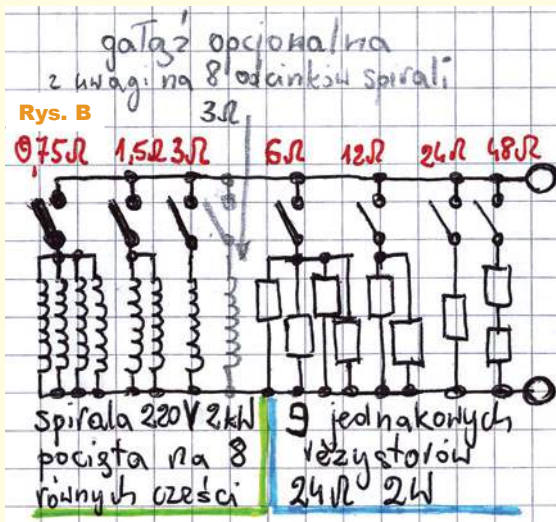 gałąź opcjonalna
z uwagi na 8 odcinków spirali
Rys. B
3Ω
0,75Ω 1,5Ω 3Ω 6Ω 12Ω 24Ω 48Ω
spirala 220V 2kW
pocięta na 8
równych części
9 jednakowych
rezystorów
24Ω 2W